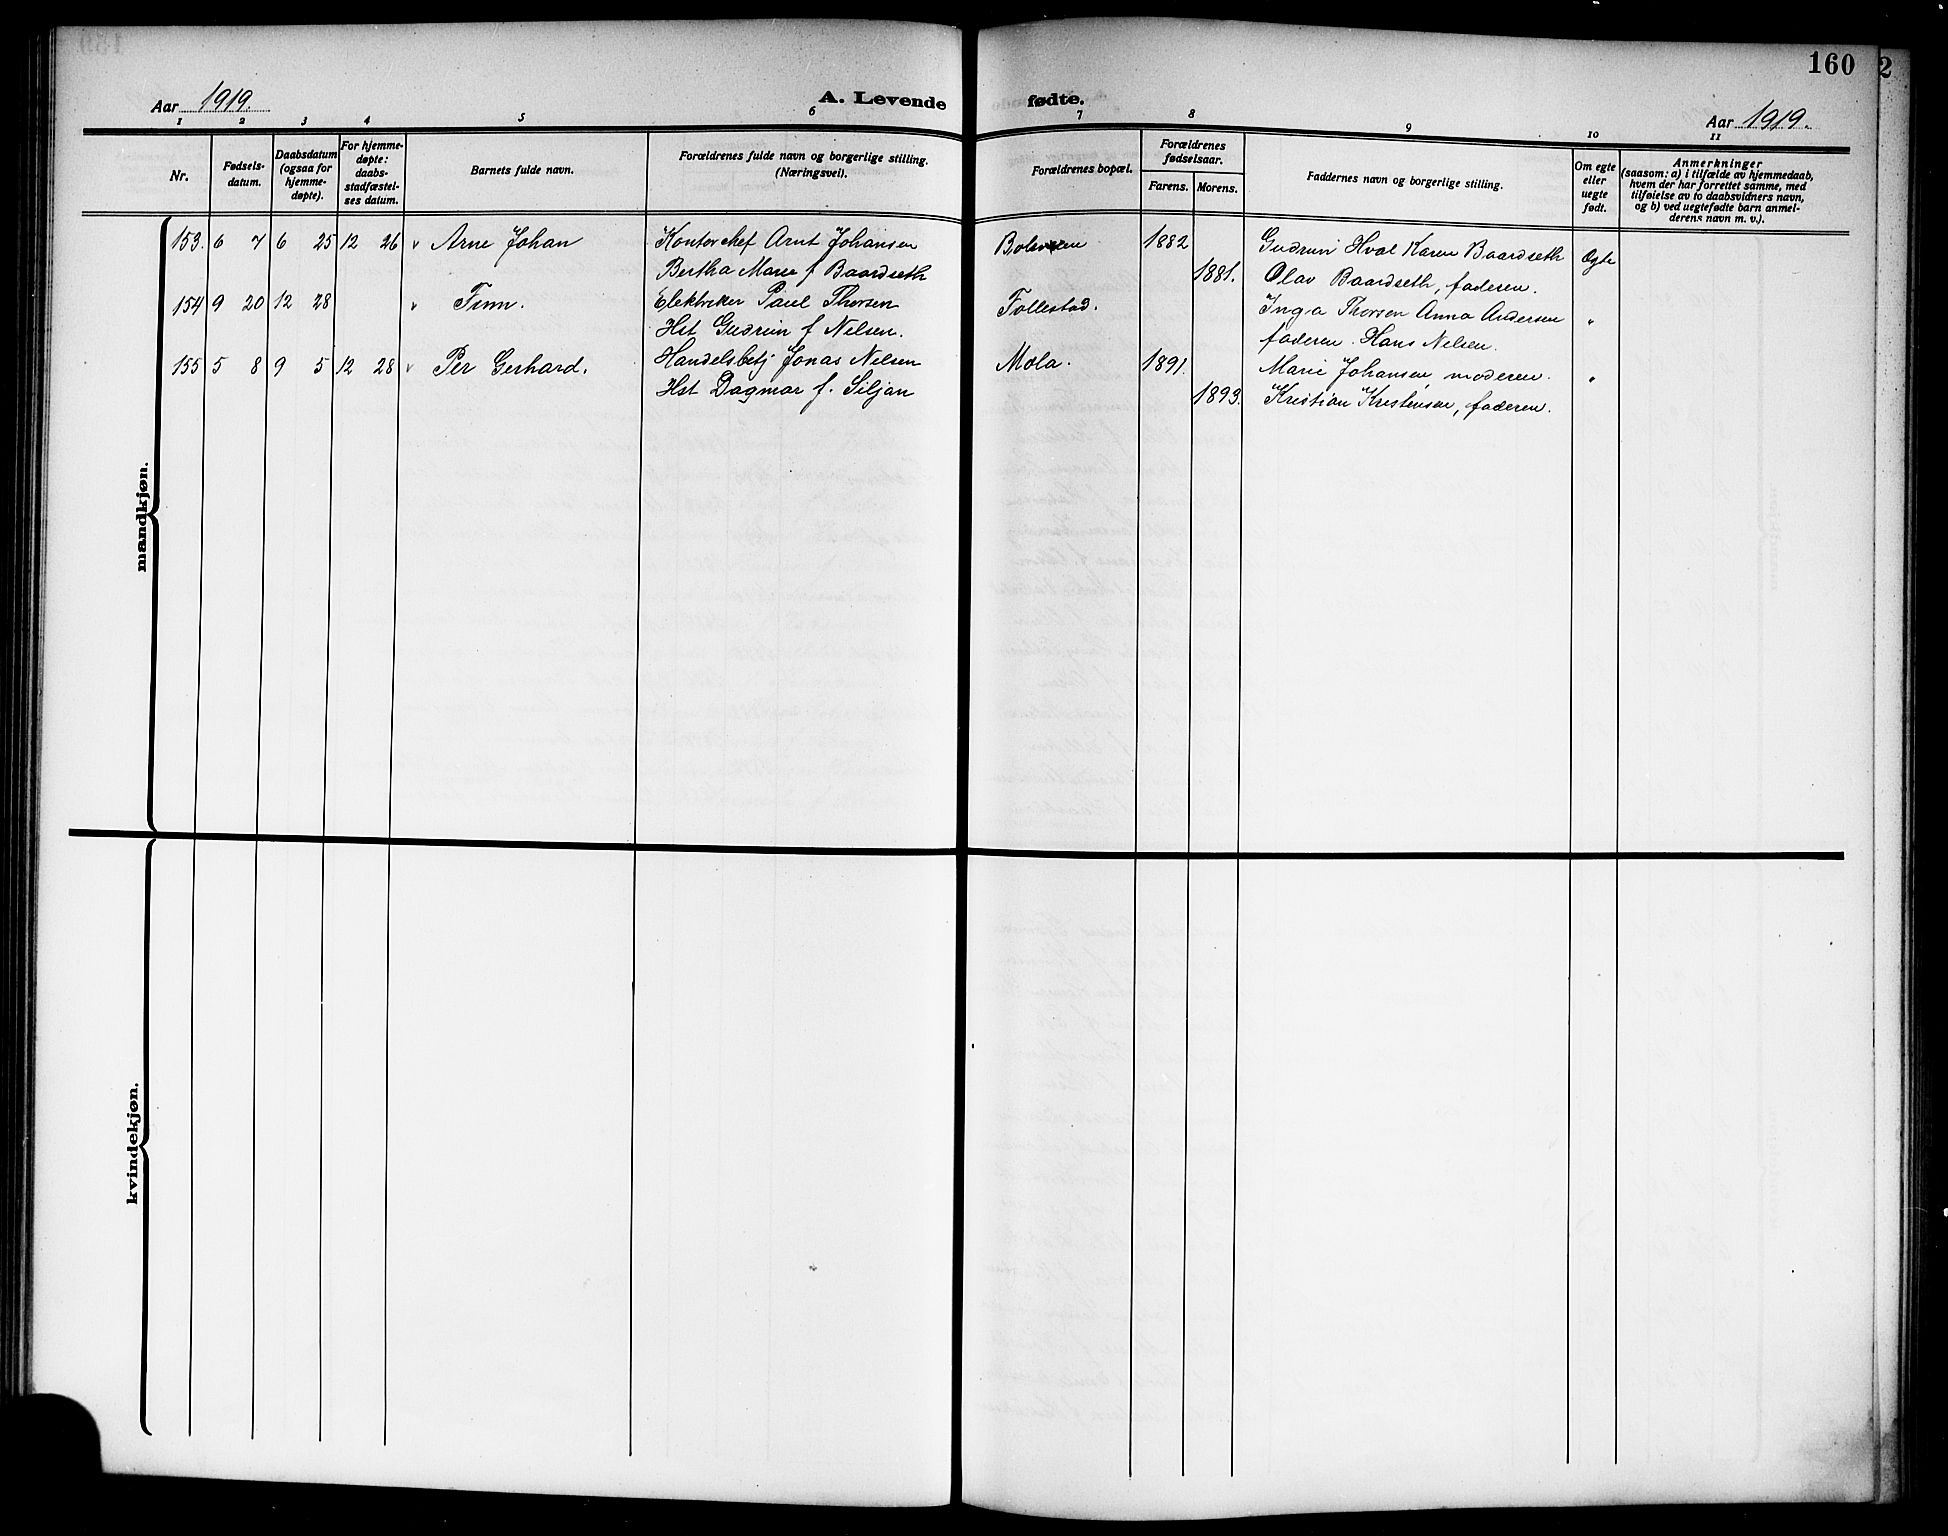 160
2
Aar 1919.
A. Levende fødte.
Aar 1919.
1 2 3 4 5 6 7 8 9 10 11
Nr.
Fødsels-
datum.
Daabsdatum
(ogsaa for
hjemme-
døpte).
For hjemme-
døpte:
daabs-
stadfæstel-
ses datum.
Barnets fulde navn.
Forældrenes fulde navn og borgerlige stilling.
(Næringsvei).
Forældrenes bopæl.
Forældrenes
fødselsaar.
Farens. Morens.
Faddernes navn og borgerlige stilling.
Om egte
eller
uegte
født.
Anmerkninger
(saasom: a) i tilfælde av hjemmedaab,
hvem der har forrettet samme, med
tilføielse av to daabsvidners navn,
og b) ved uegtefødte barn anmel-
derens navn m. v.).
153. 6 7 6 25 12 26 Arne Johan Kontorchef Arnt Johansen 1882 Gudrun Hval Karen Baardseth Egte
Bertha Marie f Baardseth 1881. Olav Baardseth, faderen.
154 9 20 12 28 " Finn. Elektriker Paul Thorsen Follestad. Inga Thorsen Anna Andersen "
Hst Gudrun f Nelsen. faderen. Hans Nelsen.
155 5 8 9 5 12 28 Per Gerhard. Handelsbetj Jonas Nelsen Mæla. 1891. Marie Johansen, moderen. "
Hst Dagmar f. Siljan 1893. Kristian Kristensen, faderen.
mandkjøn.
kvindekjøn.